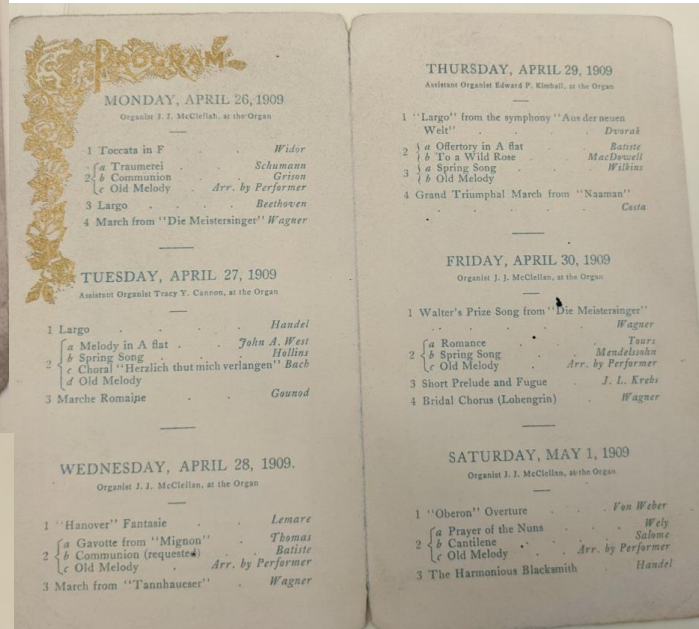 PROGRAM
MONDAY, APRIL 26, 1909
Organist J. J. McClellan, at the Organ
1 Toccata in F Widor
2 a Traumerei Schumann
b Communion Grison
c Old Melody Arr. by Performer
3 Largo Beethoven
4 March from "Die Meistersinger" Wagner
TUESDAY, APRIL 27, 1909
Assistant Organist Tracy Y. Cannon, at the Organ
1 Largo Handel
2 a Melody in A flat John A. West
b Spring Song Hollins
c Choral "Herzlich thut mich verlangen" Bach
d Old Melody
3 Marche Romaine Gounod
WEDNESDAY, APRIL 28, 1909.
Organist J. J. McClellan, at the Organ
1 "Hanover" Fantasie Lemare
2 a Gavotte from "Mignon" Thomas
b Communion (requested) Batiste
c Old Melody Arr. by Performer
3 March from "Tannhaueser" Wagner
THURSDAY, APRIL 29, 1909
Assistant Organist Edward P. Kimball, at the Organ
1 "Largo" from the symphony "Aus der neuen
Welt" Dvorak
2 a Offertory in A flat Batiste
b To a Wild Rose MacDowell
3 a Spring Song Wilkins
b Old Melody
4 Grand Triumphal March from "Naaman"
Costa
FRIDAY, APRIL 30, 1909
Organist J. J. McClellan, at the Organ
1 Walter's Prize Song from "Die Meistersinger"
Wagner
2 a Romance Tours
b Spring Song Mendelssohn
c Old Melody Arr. by Performer
3 Short Prelude and Fugue J. L. Krebs
4 Bridal Chorus (Lohengrin) Wagner
SATURDAY, MAY 1, 1909
Organist J. J. McClellan, at the Organ
1 "Oberon" Overture Von Weber
2 a Prayer of the Nuns Wely
b Cantilene Salome
c Old Melody Arr. by Performer
3 The Harmonious Blacksmith Handel